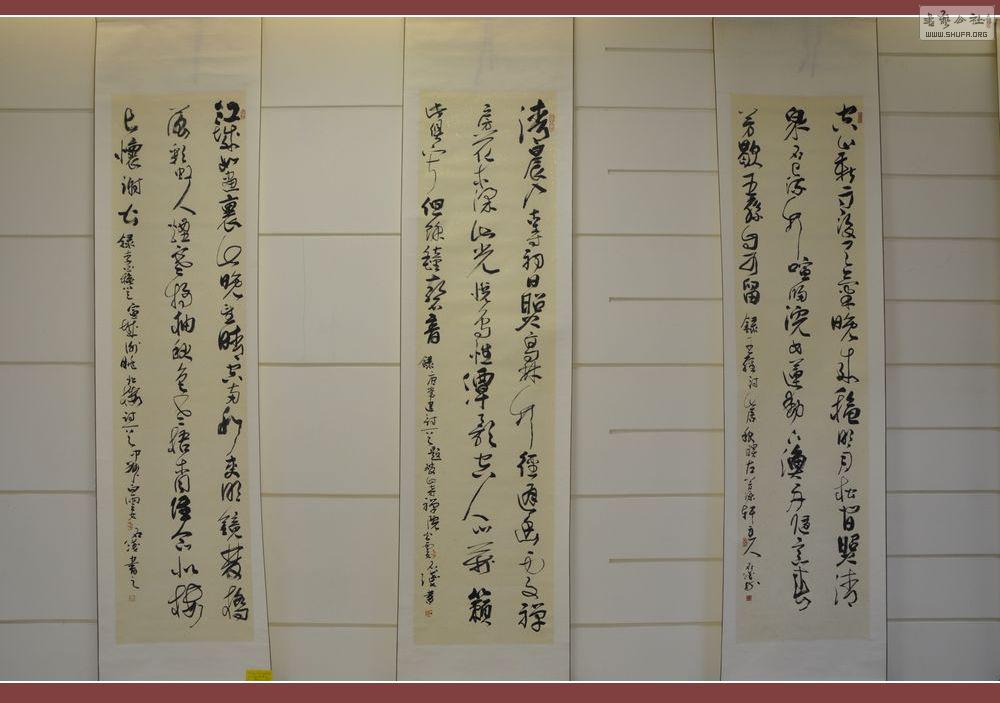 空山新雨后天气晚来秋明月松间照清
泉石上流竹喧归浣女莲动下渔舟随意春
芳歇王孙自可留
录王维诗山居秋暝
轩主人
清晨入古寺初日照高林竹径通幽处禅
房花木深山光悦鸟性潭影空人心万籁
此俱寂但余钟磬音
录唐常建诗一首题破山寺禅院
书
江城如画里山晚望晴空两水夹明镜双桥
落彩虹人烟寒橘柚秋色老梧桐谁念北楼
上怀谢公
录李白秋登宣城谢朓北楼诗一首
书之
书艺公社
WWW.SHUFA.ORG